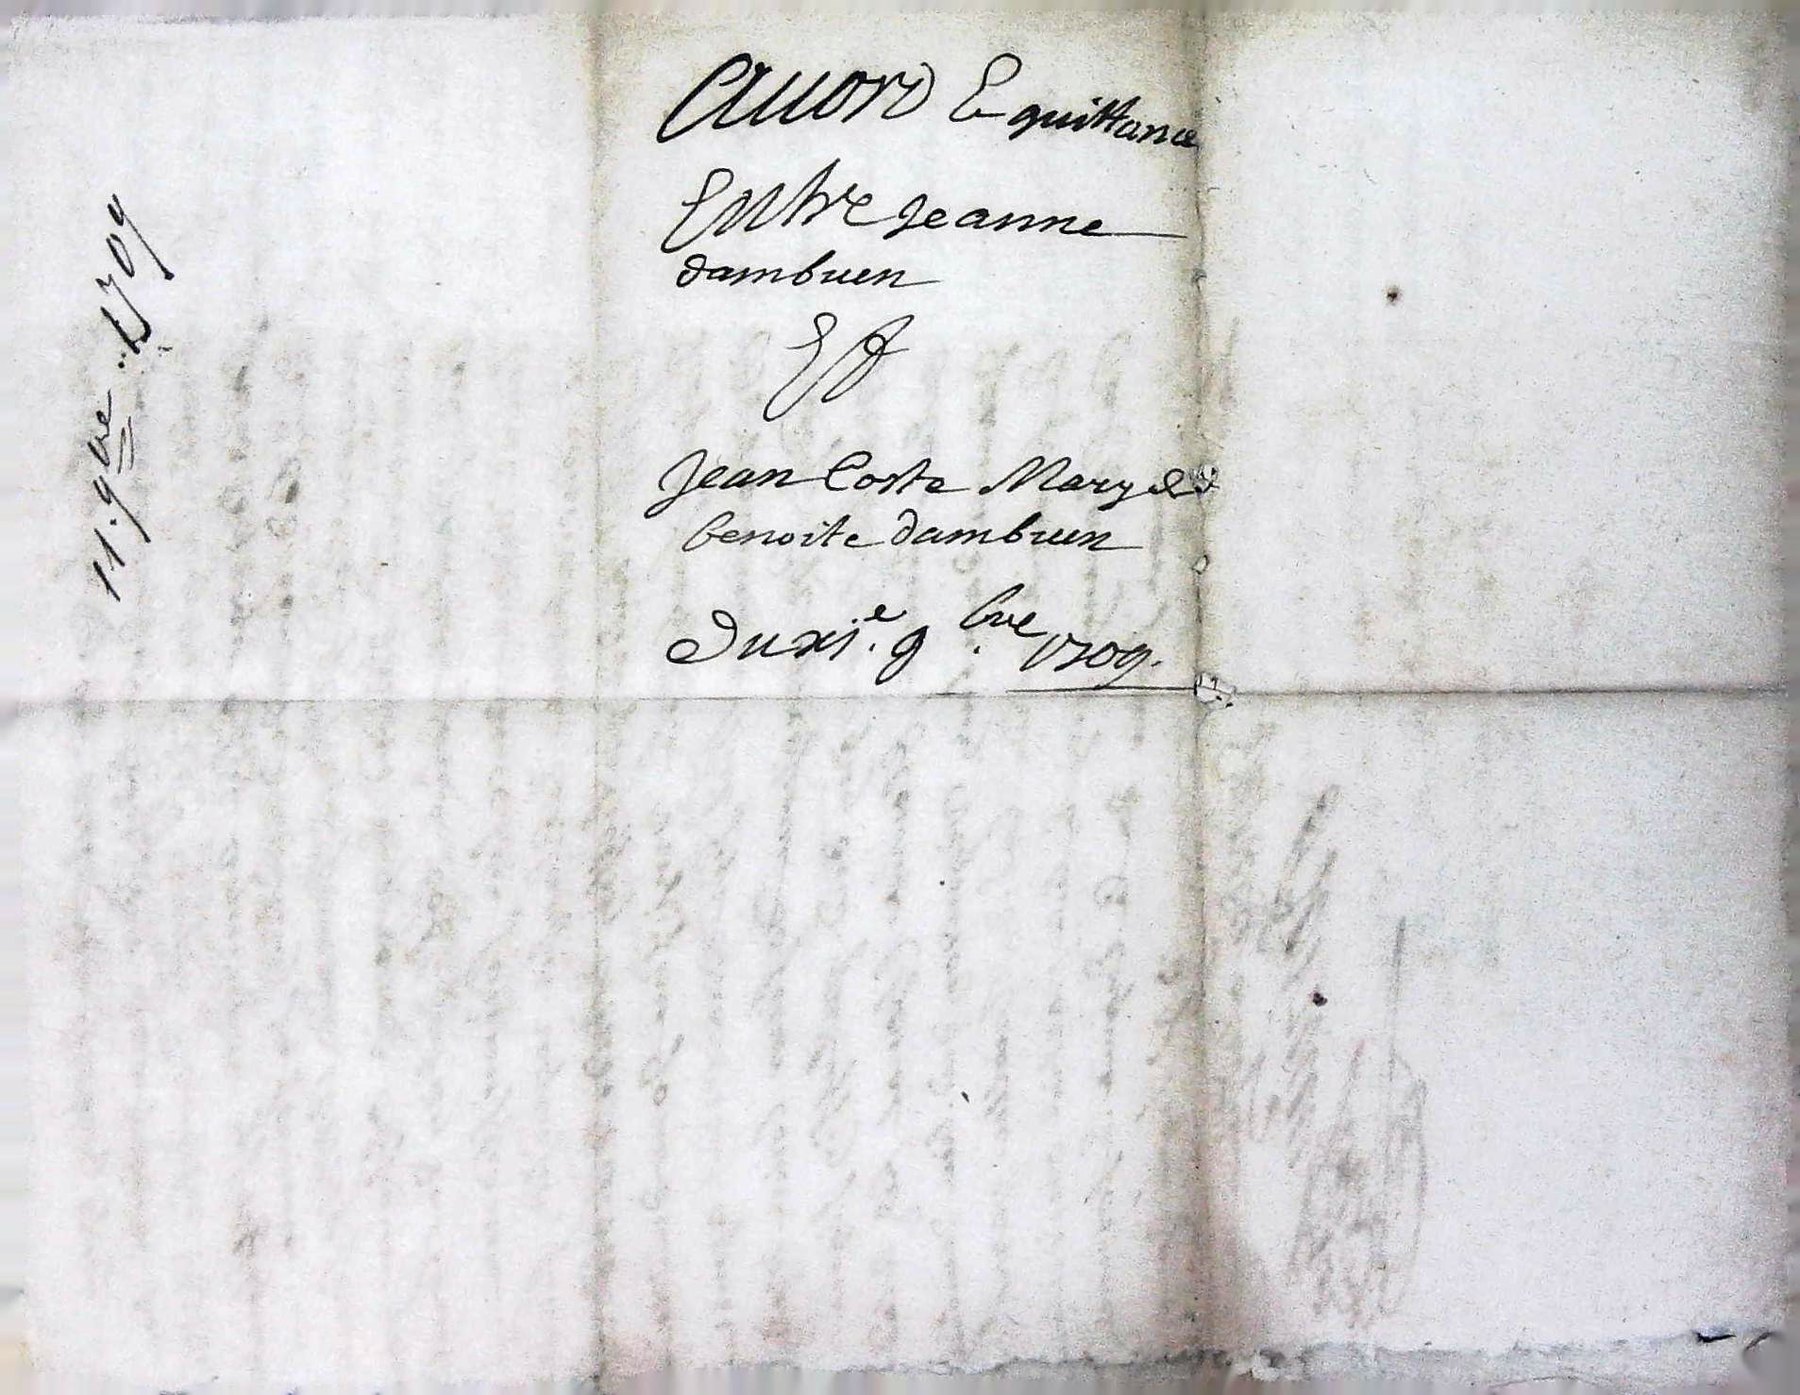 Accord & quittance
Entre Jeanne
dambrun
Et
Jean Coste Mary de
benoite dambrun
Du xi.e 9.bre 1709.
11. 9bre .1709